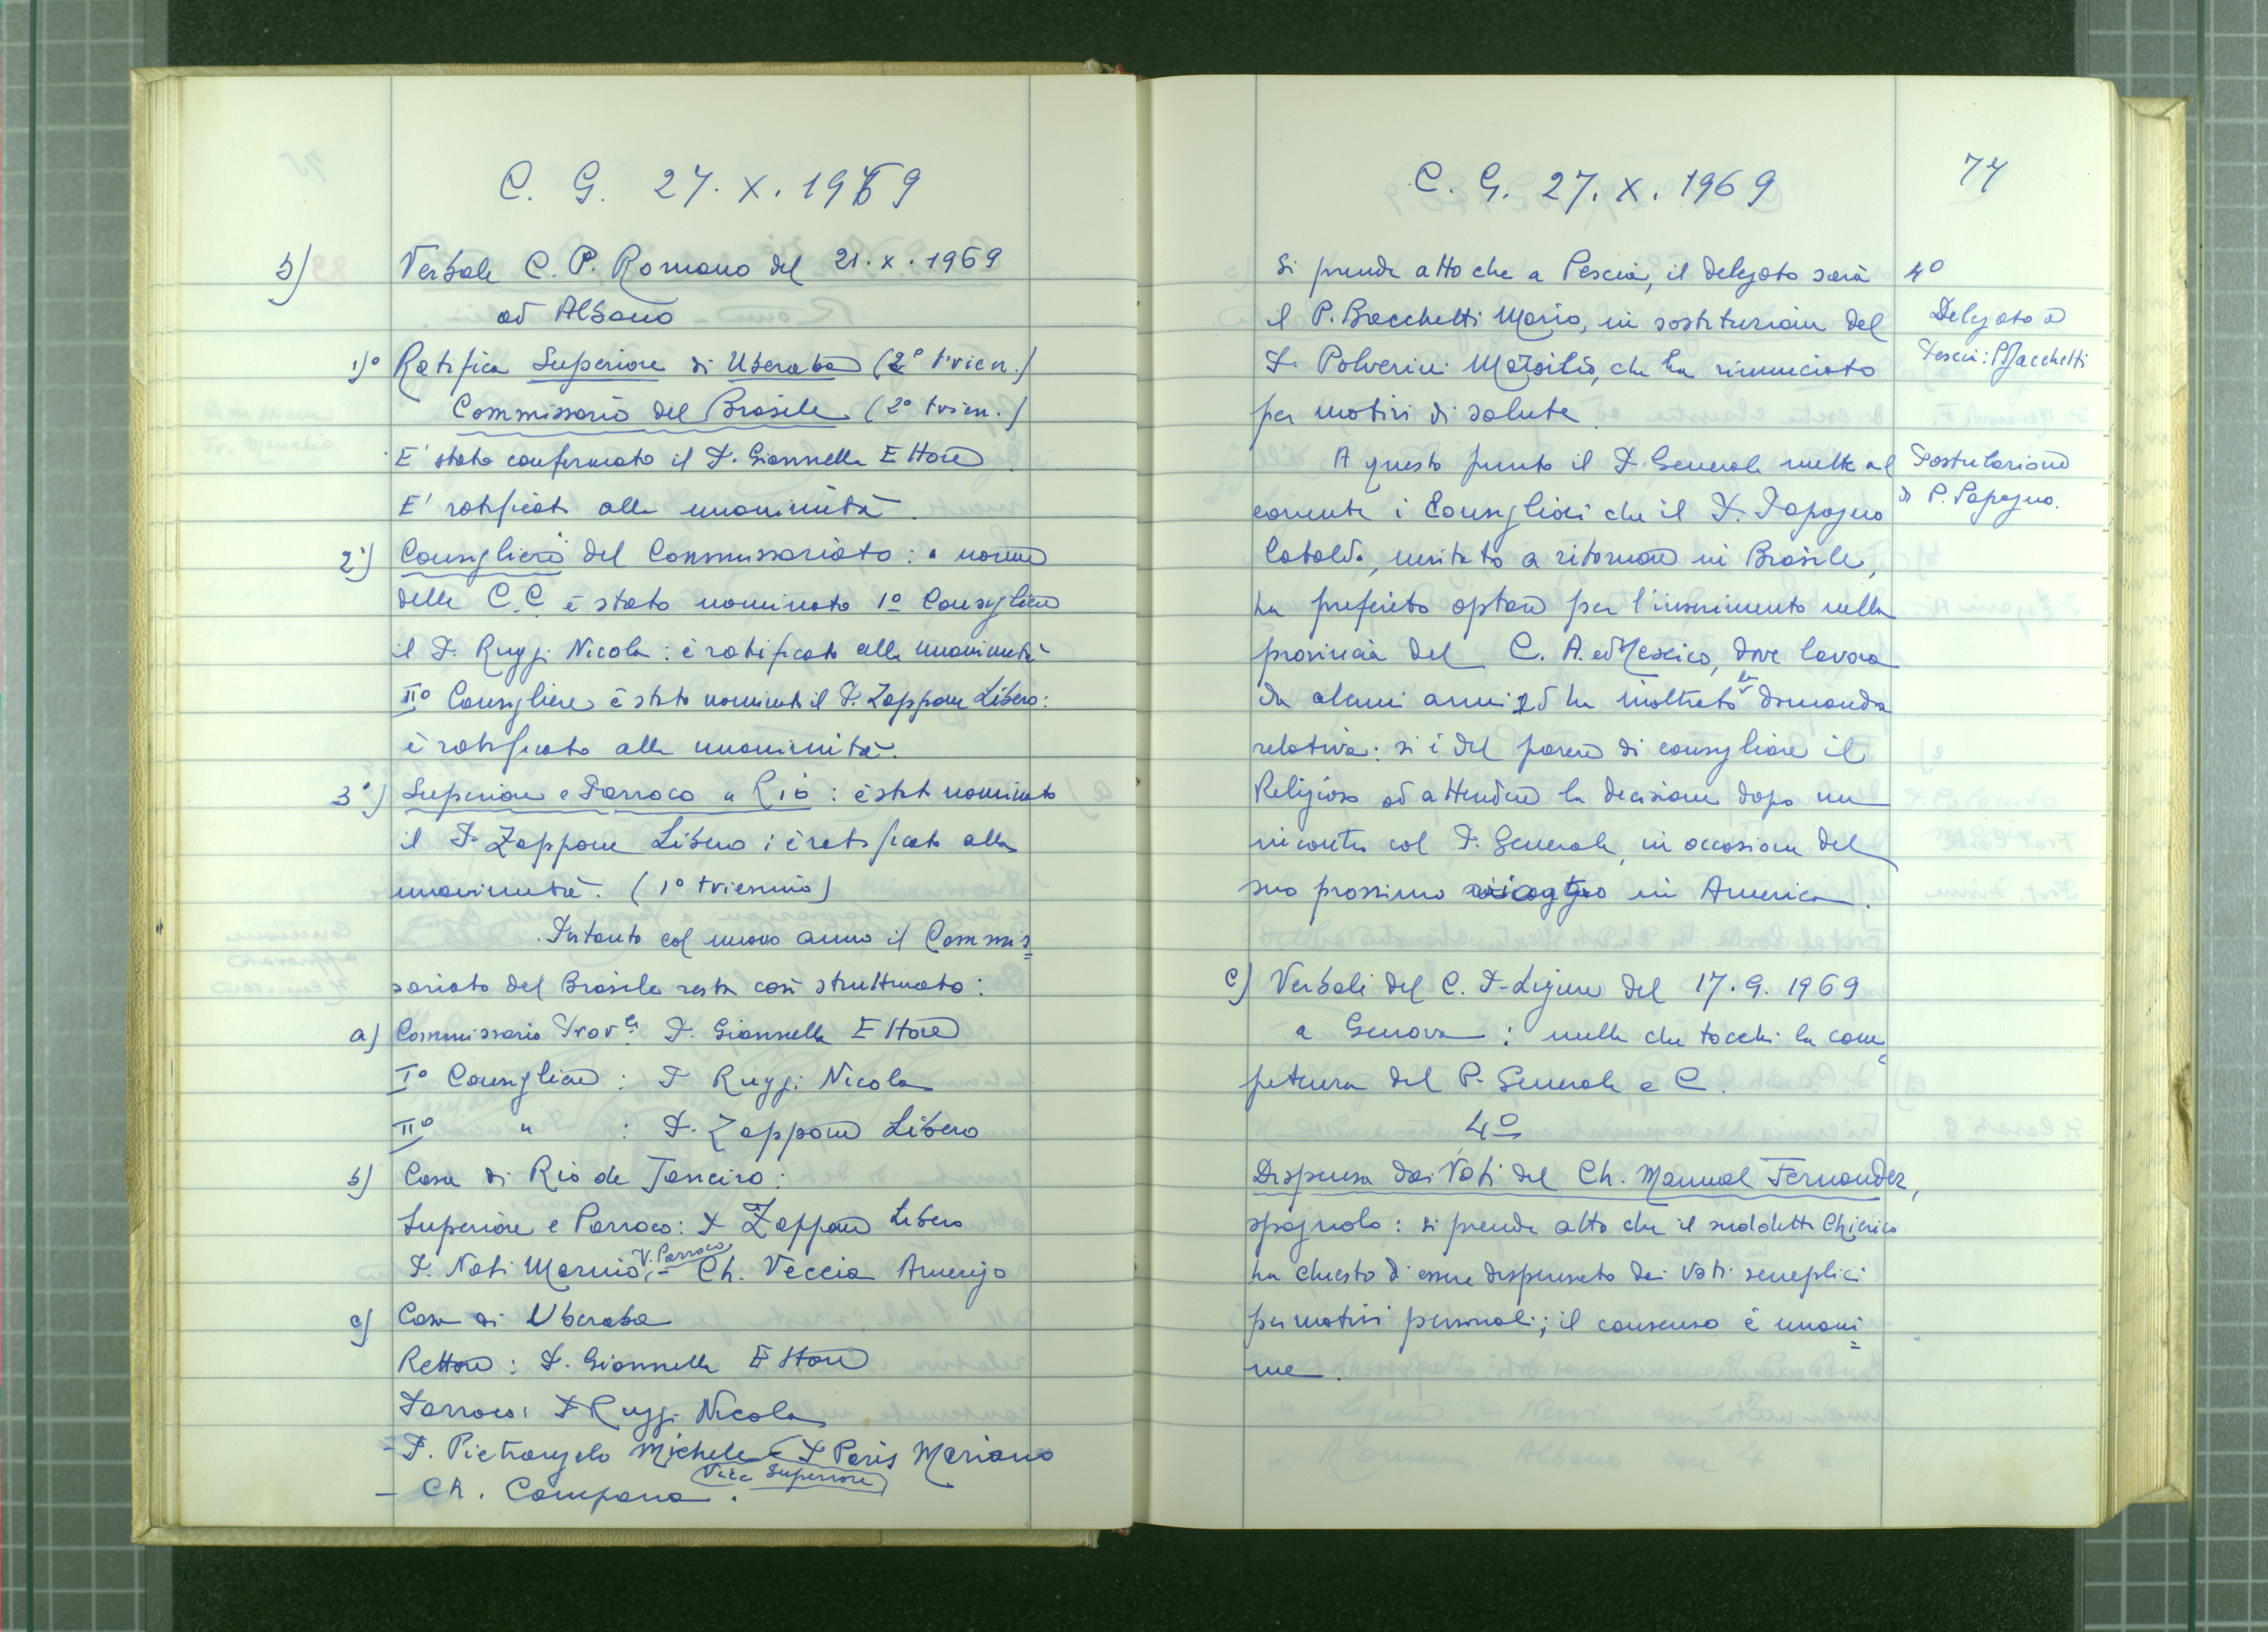 C. G. 27. X. 1969
b) Verbale C. P. Romano del 21. X. 1969
ad Albano
1)° Ratifica Superiore di Uberaba (2° trien.)
Commissario del Brasile (2° trien.)
E' stato confermato il P. Giannella Ettore.
E' ratificato alla unanimità.
2°) Consigliere del Commissariato: a norme
delle C.C è stato nominato 1° Consigliere
il P. Ruggi Nicola: è ratificato alla unanimità
II° Consigliere è stato nominato il P. Zappone Libero:
è ratificato alla unanimità.
3°) Superiore e Parroco a Rio: è stato nominato
il P. Zappone Libero; è ratificato alla
unanimità. (1° triennio)
Intanto col nuovo anno il Commis=
sariato del Brasile resta così strutturato:
a) Commissario Prov.le P. Giannella Ettore
I° Consigliere: P Ruggi Nicola
II° " : P. Zappone Libero
b) Casa di Rio de Janeiro:
Superiore e Parroco: P Zappone Libero
P. Nati Marnio, V. Parroco - Ch. Veccia Amerigo
c) Casa di Uberaba
Rettore: P. Giannella Ettore
Parroco: P Ruggi Nicola
- P. Pietrangelo Michele - P Paris Mariano
(Vice Superiore)
- Ch. Campana.
C. G. 27. X. 1969
77
Si prende atto che a Pescia, il delegato sarà
il P. Bacchetti Mario, in sostituzione del
P. Polverini Marsilio, che ha rinunciato
per motivi di salute.
4°
Delegato a
Pescia: P Bacchetti
A questo punto il P. Generale mette al
corrente i Consiglieri che il P. Papagno
Cataldo, invitato a ritornare in Brasile,
ha preferito optare per l'inserimento nella
provincia del C. A. ed Messico, dove lavora
da alcuni anni ed ha inoltrato la domanda
relativa: si è del parere di consigliare il
Religioso ad attendere la decisione dopo un
incontro col P. Generale, in occasione del
suo prossimo viaggio in America.
Postulazione
di P. Papagno.
c) Verbali del C. P. Ligure del 17. 9. 1969
a Genova: nulla che tocchi la com=
petenza del P. Generale e C.
4°
Dispensa dai Voti del Ch. Manuel Fernandez,
spagnolo: si prende atto che il suddetto Chierico
ha chiesto di essere dispensato dai Voti semplici
per motivi personali; il consenso è unani=
me.